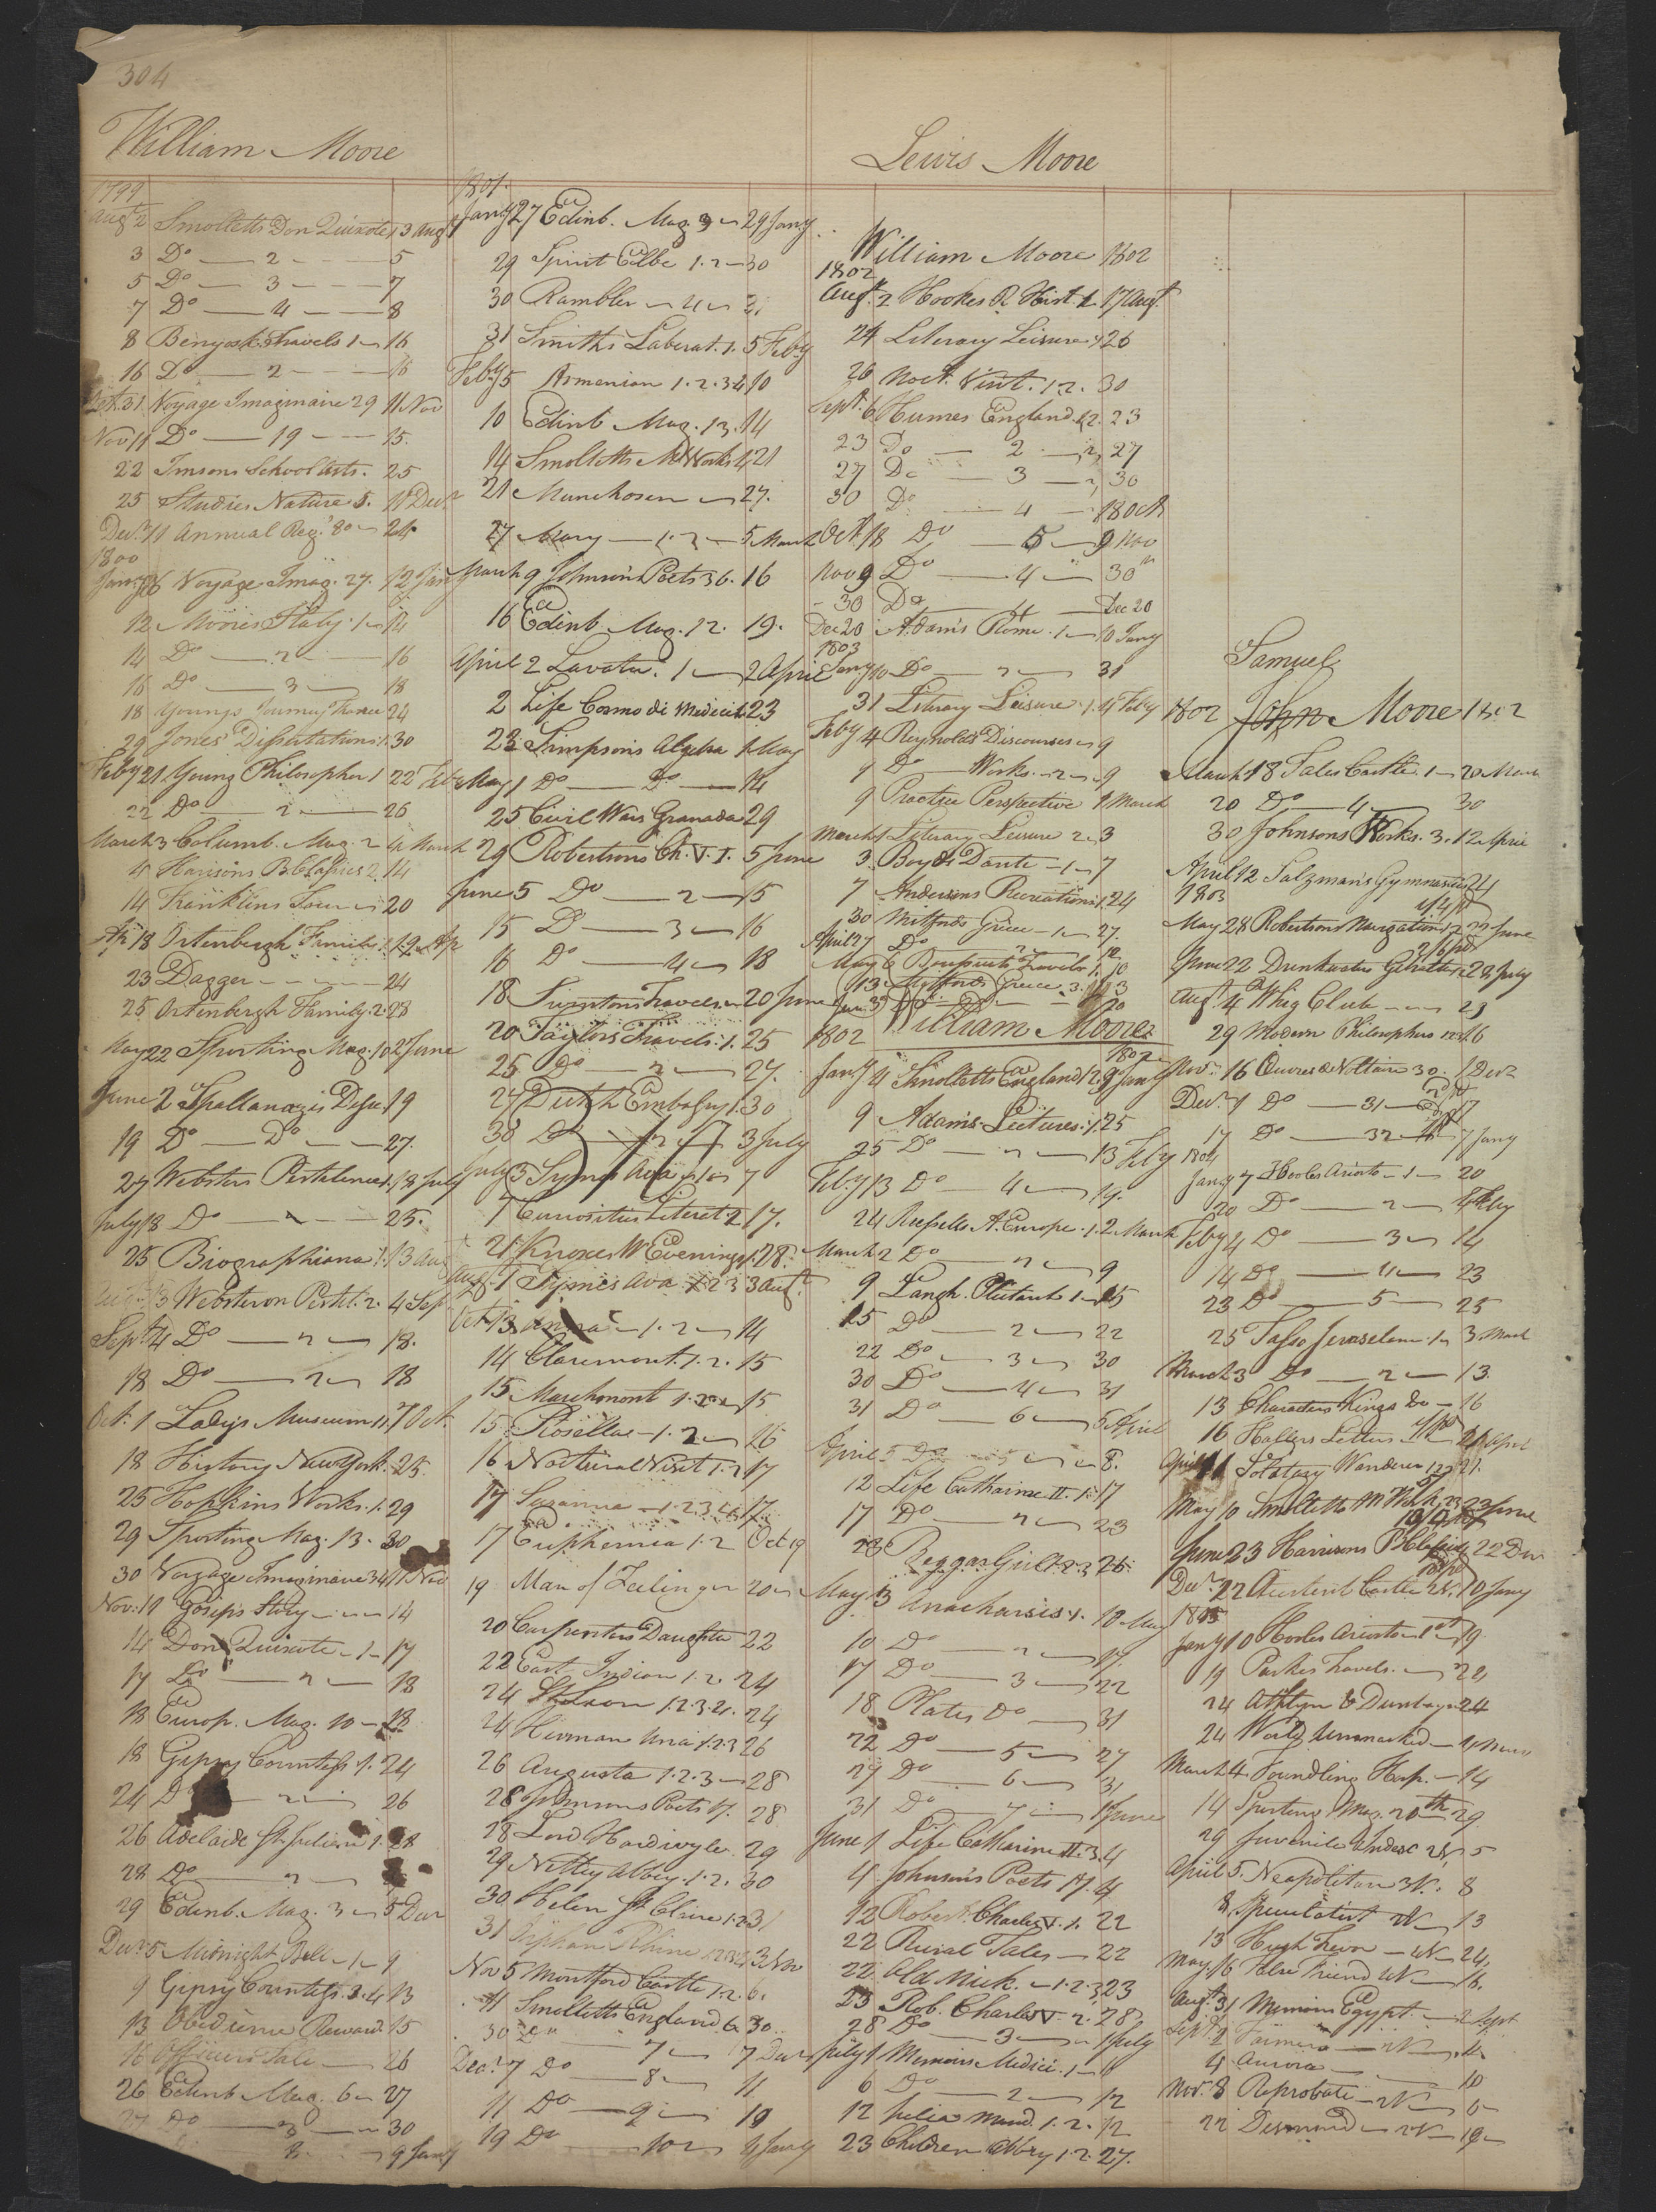 304
William Moore
1799
Augt 2 Smolletts Don Quixote 1 3 Augt
3 Do — 2 — 5
5 Do — 3 — 7
7 Do — 4 — 8
8 Benyosk. Travels 1 — 16
16 Do — 2 — 18
Oct. 31 Voyage Imaginaire 29 11 Nov
Nov 11 Do — 19 — 15.
22 Imsons School Arts. 25
25 Studies Nature 5. 11 Decr
Decr 11 Annual Reg. 80 — 24
1800
Jany 6 Voyage Imag. 27. 12 Jan
12 Moores Italy 1 — 14
14 Do — 2 — 16
16 Do — 3 — 18
18 Youngs Journey France 24
29 Jones' Dissertations 1. 30
Feby 21 Young Philosopher 1 22 Feb
22 Do — 2 — 26
March 3 Columb. Mag. 2 4 March
4 Harisons B. Classics 2. 14
14 Franklins 20
Ap 18 Ortenbergh Family 1. 19 Ap
23 Dagger — 24
25 Ortenbergh Family. 2. 28
May 22 Sporting Mag. 10 2 June
June 2 Spallanazis Disser 19
19 Do — Do — 27.
27 Websters Pestilence 1. 18 July
July 18 Do — 25.
25 Biographiana 1. 13 Aug
13 Webster on Pestil. 2. 4 Sep
Sept 4 Do — 2 — 18.
18 Do — 2 — 18
Oct. 1 Ladys Museum 11. 7 Oct.
18 History New York. 25.
25 Hopkins Works. 1. 29
29 Sporting Mag. 13. 30
30 Voyage Imaginaire 34 11 Nov
Nov. 11 Gosips Story — 14
14 Don Quixote — 1 — 17
17 Do — 2 — 18
18 Europ. Mag. 10 — 18
18 Gipsy Countess 1. 24
24 Do — 2 — 26
26 Adelaide St. Julien 1. 28
28 Do — 2
29 Edinb. Mag. 3 — 5 Decr
Decr 5 Midnight Bell — 1 — 9
9 Gipsy Countess. 3. 4 13
13 Obedience Reward. 15
16 Officers Tale — 26
26 Edinb Mag. 6 — 27
27 Do — 3 — 30
9 Jany
1801.
Jany 27 Edinb. Mag. 3 — 29 Jany
29 Spirit Elbe 1. 2 — 30
30 Rambler — 4 — 31
31 Smiths Laborat. 1. 5 Feby
Feby 5 Armenian 1. 2. 3 4 10
10 Edinb Mag. 13. 14
14 Smolletts M Works 4 21
21 Munchosen — 27.
27 Mary — 1. 2 — 5 March
March 9 Johnson Poets 36. 16
16 Edinb Mag. 12. 19.
April 2 Lavater. 1 — 2 April
2 Life Cosmo di Medici 1. 23
23 Simpsons Algebra 1 May
May 1 Do — Do — 14
25 Civil Wars Granada 29
29 Robertsons Ch. V. 1. 5 June
June 5 Do — 2 — 15
15 Do — 3 — 16
16 Do — 4 — 18
18 Travels — 20 June
20 Taylors Travels 1. 25
25 Do — 2 — 27.
27 Dutch Embassy 1. 30
30 Do — 2 — 3 July
July 3 Symes Ava 1 — 7
7 Curiosities Literat. 2 17.
21 Knoxes W Evenings 1. 28.
Augt. 1 Symes Ava 1. 2 3 3 Augt.
Oct. 13 Anna — 1. 2 — 14
14 Claremont. 1. 2. 15
15 Marchmont 1. 2 — 15
15. Rosella — 1. 2 — 16
16 Nocturnal Visit 1. 2 17
17 Suzanne — 1. 2 3 4 17.
17 Euphemia 1. 2 Oct 19
19 Man of Feeling — 20 —
20 Carpenters Daughter 22
22 East Indian 1. 2. 24
24 St. Leon 1. 2. 3. 4. 24
24 Herman Una 1. 2. 3 26
26 Augusta 1. 2. 3 — 28
28 Johnsons Poets 17. 28
28 Lord Hardivyle. 29
29 Netley Abbey. 1. 2. 30
30 Helen St. Claire 1. 2 31
31 Orphan Rhine 1 2 3 4 3 Nov
Nov 5 Montford Castle 1. 2. 6.
11 Smolletts England. 6 30.
30 Do — 7 — 7 Decr
Decr 7 Do — 8 — 11
11 Do — 9 — 19
19 Do — 10 — 4 Jany
Lewis Moore
William Moore 1802
1802
Augt. 2 Hookes R. Hist. 1 17 Augt.
24 Literary Leisure 1 26
26 Noct. Visit. 1. 2. 30
Sept. 6 Humes England. 1 2. 23
23 Do — 2 — 27
27 Do — 3 — 30
30 Do — 4 — 18 Oct
Oct 18 Do — 5 — 9 Nov
Nov 9 Do — 4 — 30th
30 Do — 4 — Dec 20
Dec 20 Adam's Rome. 1 — 10 Jany
1803
Jany 10 Do — 2 — 31
31 Literary Leisure. 1. 4 Feby
Feby 4 Reynolds Discourses — 9
9 Do — Works — 2 — 9
9 Practice Perspective 1 March
March 1 Literary Leisure 2. 3
3. Boyds Dante — 1 — 7
7 Andersons Recreations 1. 24
30 Mitfords Greece — 1 — 27
April 27 Do — 2 — 12
May 6 Travels 1. 10
13 Mitfords Greece. 3. 13
William Moore
1802
Jany 4 Smolletts England 12. 9 Jany
9 Adams Lectures. 1. 25
25 Do — 2 — 13 Feby
Feby 13 Do — 4 — 19.
24 Russells A. Europe. 1. 2 March
March 2 Do — 2 — 9
9 Langh. Plutarch 1 — 15
15 Do — 2 — 22
22 Do — 3 — 30
30 Do — 4 — 31
31 Do — 6 — 5 April
April 5 Do — 5 — 8.
12 Life Catharine II. 1. 17
17 Do — 2 — 23
23 Beggar Girl 1. 2. 3 26.
May 3 Anacharsis 1. 10 May
10 Do — 2 — 17.
17 Do — 3 — 22
18 Plates Do — 31
22 Do — 5 — 27
27 Do — 6 — 31
31 Do — 7 — 1 June
June 1 Life Catharine II. 3. 4
4 Johnson's Poets 17. 4
12 Robert. Charles V. 1. 22
22 Rural Tales — 22
22 Old Nick. — 1. 2. 3 23
23 Rob. Charles V. 2. 28
28 Do — 3 — 1 July
July 1 Memoirs Medici. 1 — 6
6 Do — 2 — 12
12 Julia Mand. 1. 2. 12
23 Children Abbey 1. 2. 27.
Samuel
1802 John Moore 1802
March 18 Tales Castle. 1 — 20 March
20 Do — 4 — 30
30 Johnsons Works. 3. 12 April
April 12 Salzman's Gymnastics 24
1803
May 28 Robertsons Navigation 1. 2 22 June
June 22 Drinkwaters Gibralter 28 July
Augt. 4 Whig Club — 29
29 Modern Philosophers 1 2 3 16
Novr. 16 Œuvres de Voltaire 30. 1 Decr
Decr. 1 Do — 31 — 17
17 Do — 32 — 7 Jany
1804
Jany 7 Hooles Ariosto — 1 — 20
20 Do — 2 — 4 Feby
Feby 4 Do — 3 — 14
14 Do — 4 — 23
23 Do — 5 — 25
25 Tasso Jerusalem. 1 — 3. March
March 3 Do — 2 — 13.
13 Characters Kings &c — 16
16 Hallers Letters — April
April 11 Solotary Wanderer 1. 2 21.
May 10 Smolletts M Wks 1. 2 3 23 June
June 23 Harrisons B Classics 22 Decr
Decr. 22 Castle 2V. 10 Jany
1805
Jany 10 Hooles Ariosto — 1st — 19
19 Parkes Travels. — 24
24 Athlyn & Dunbayn 24
24 World Unmasked — 4 March
March 4. Foundling Hosp. — 14
14 Sporting Mag. 20th 29
29 Juvenile Index 2V 5
April 5. Neapolitan 3V. 8
8. Speculatist 2V — 13
13 Hugh Trevor — 4V — 24.
May 16 False Friend 4V — 16.
Augt. 31 Memoirs Egypt. — 2 Sept
Sept 2 — 2V — 4.
4 Aurora — 10
Novr. 8 Reprobate — 2V — 6 —
22 Desmond — 2V — 19 —